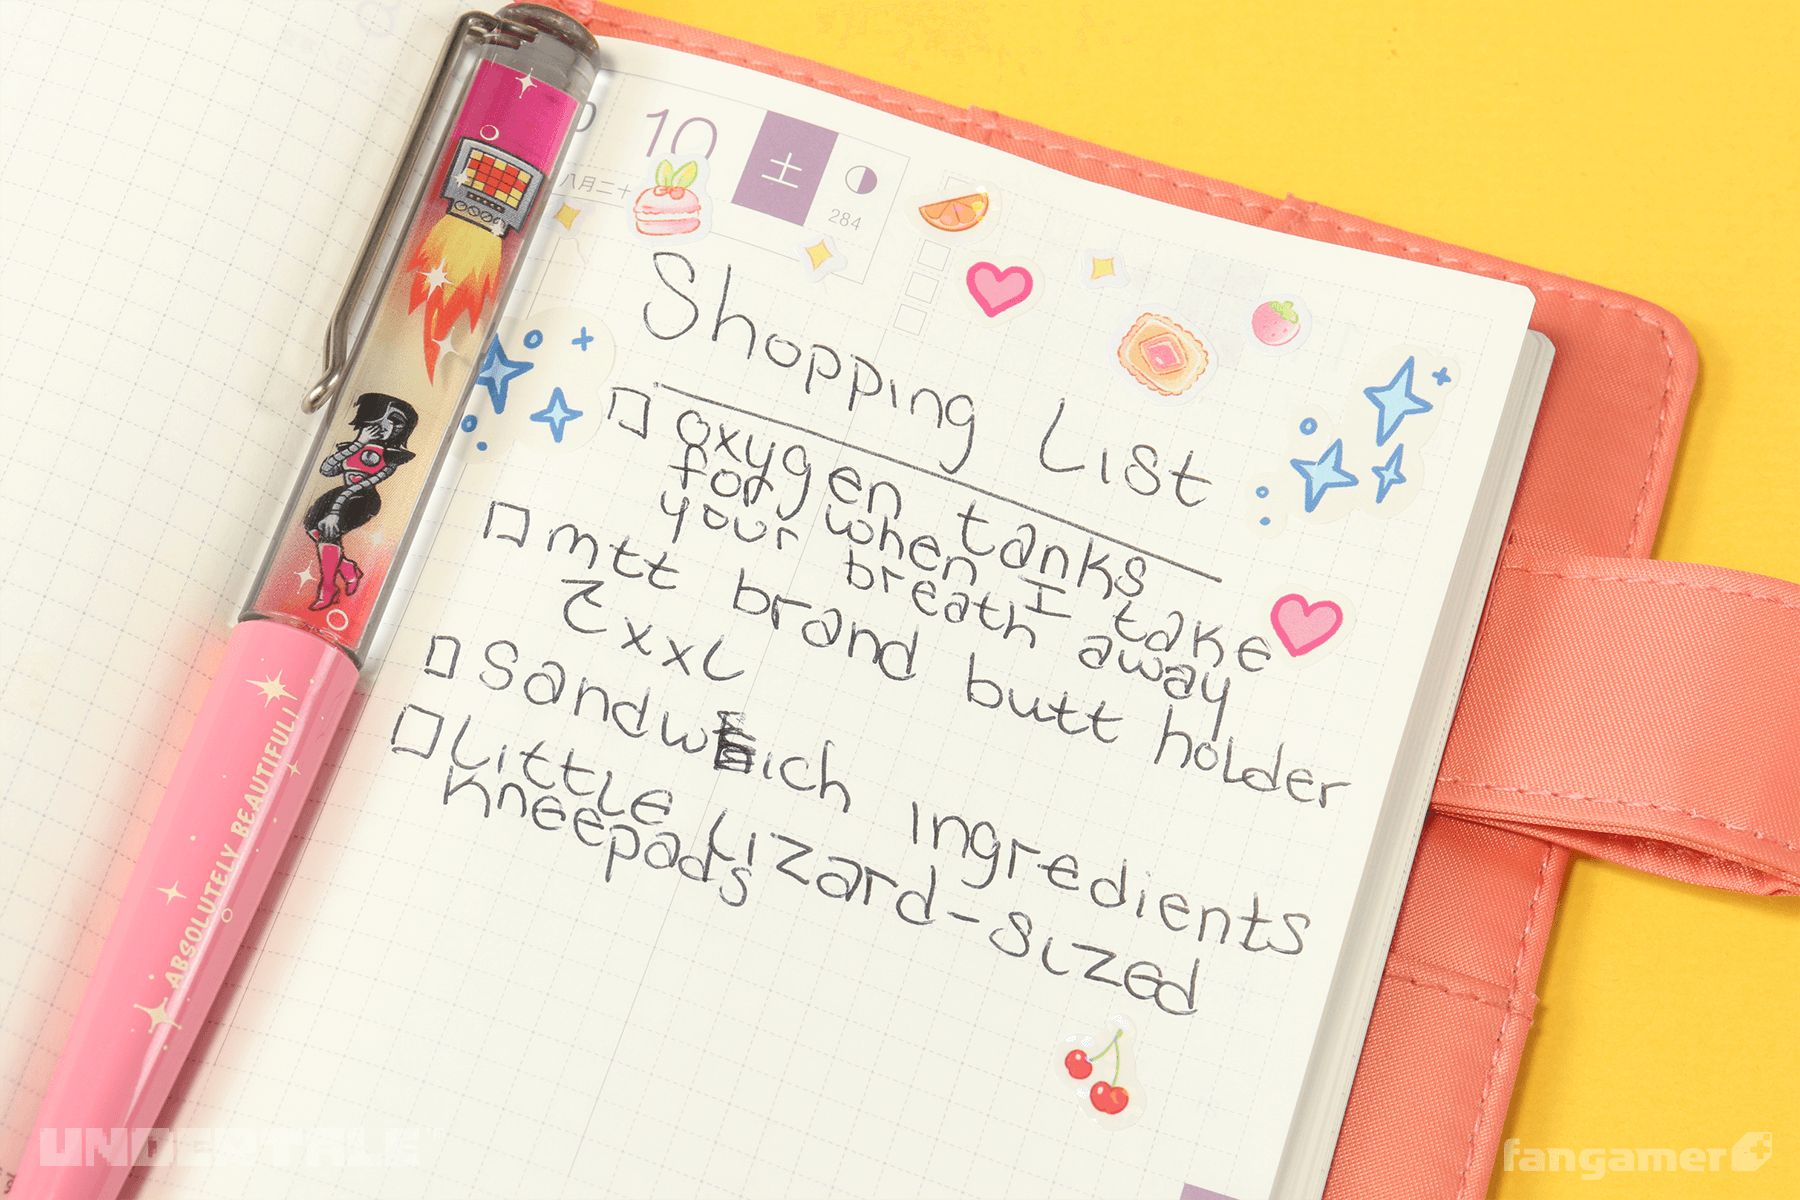 10
土
八月二十
284
Shopping List
oxygen tanks
for when I take
your breath away
mtt brand butt holder
Zxxl
Sandwich ingredients
Little Lizard-sized
kneepads
ABSOLUTELY BEAUTIFUL!
UNDERTALE
fangamer